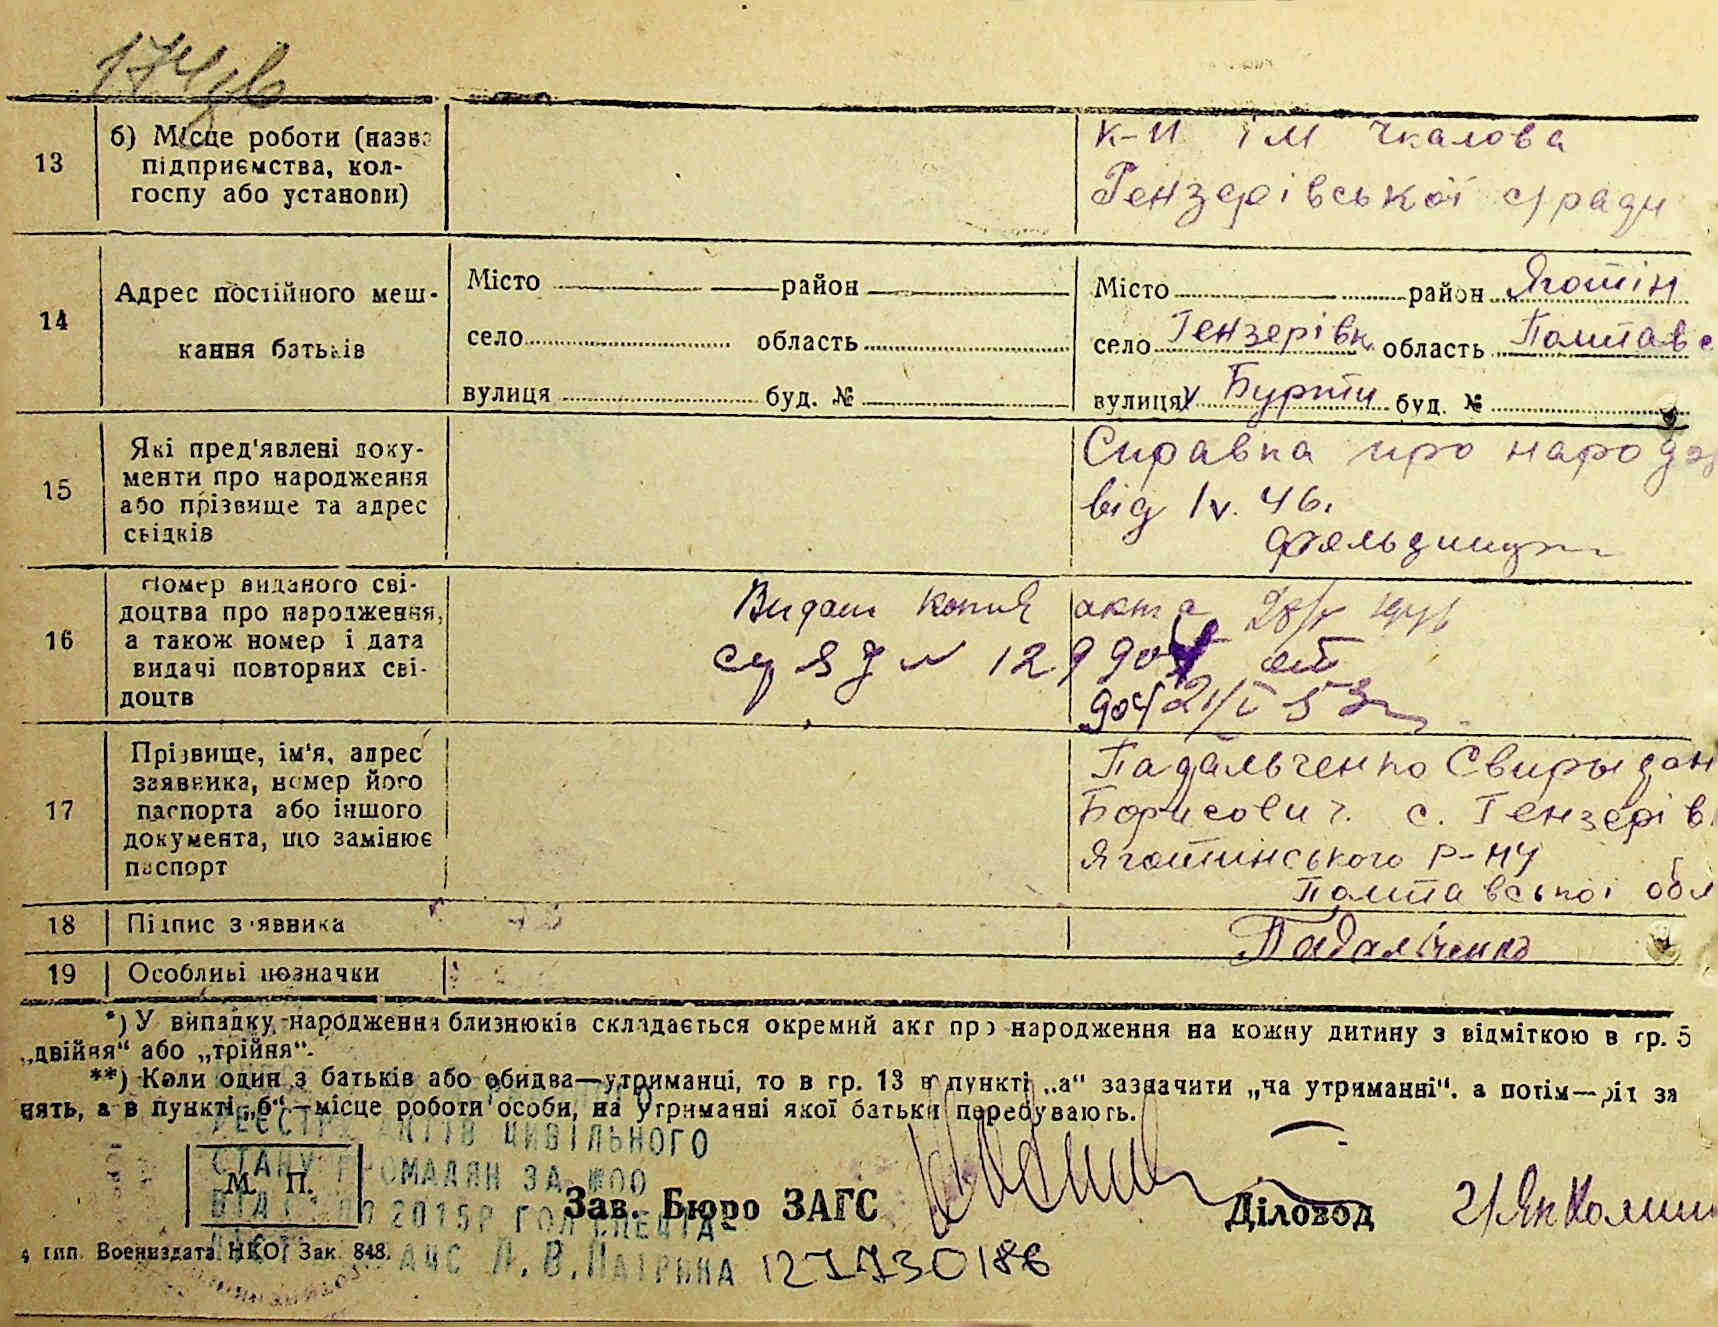 13 б) Місце роботи (назва
підприємства, кол-
госпу або установи)
к-п ім Чкалова
Гензерівської с/ради
14 Адрес постійного меш-
кання батьків
Місто район
село область
вулиця буд. №
Місто район Яготін
село Гензерівк область Полтавс
вулиця Бурти буд. №
15 Які пред'явлені доку-
менти про народження
або прізвище та адрес
свідків
Справка про народж
від IV. 46.
16 Номер виданого сві-
доцтва про народження,
а також номер і дата
видачі повторних сві-
доцтв
Видат копия акта
129904 от
904 21/V 53г
17 Прізвище, ім'я, адрес
заявника, номер його
паспорта або іншого
документа, що замінює
паспорт
Падальченко Свиридон
Борисович. с. Гензерів
Яготинського р-ну
Полтавської обл
18 Підпис заявника
Падальченко
19 Особливі позначки
*) У випадку народження близнюків складається окремий акт про народження на кожну дитину з відміткою в гр. 5
„двійня“ або „трійня“.
**) Коли один з батьків або обидва—утриманці, то в гр. 13 в пункті „а“ зазначити „на утриманні“. а потім—рід за
нять, а в пункті „б“—місце роботи особи, на утриманні якої батьки перебувають.
РЕЄСТР АКТІВ ЦИВІЛЬНОГО
СТАНУ ГРОМАДЯН ЗА
М. П.
2015Р ГОЛ СПЕЦ
Зав. Бюро ЗАГС
Діловод
4 тип. Воениздата НКО. Зак. 848.
127730186